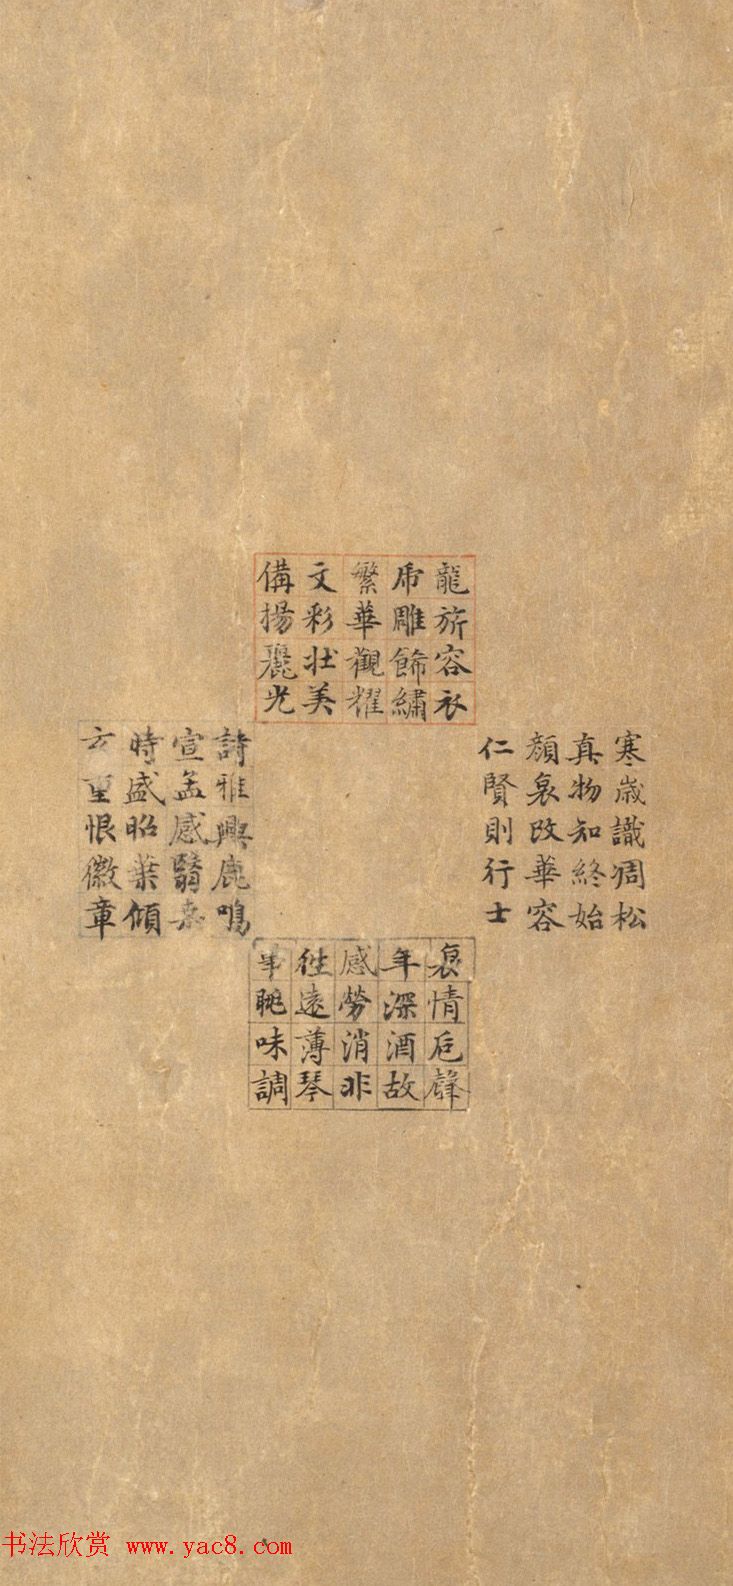 龍旂容衣
帍雕餙繡
繁華觀耀
文彩壯美
備揚麗光
寒歲識凋松
真物知終始
顏衰改華容
仁賢則行士
詩雅興鹿鳴
宣孟感翳桒
時盛昭葉傾
玄重恨徽章
哀情后聲
年深酒故
感勞消非
往遠薄琴
眺味調
书法欣赏 www.yac8.com